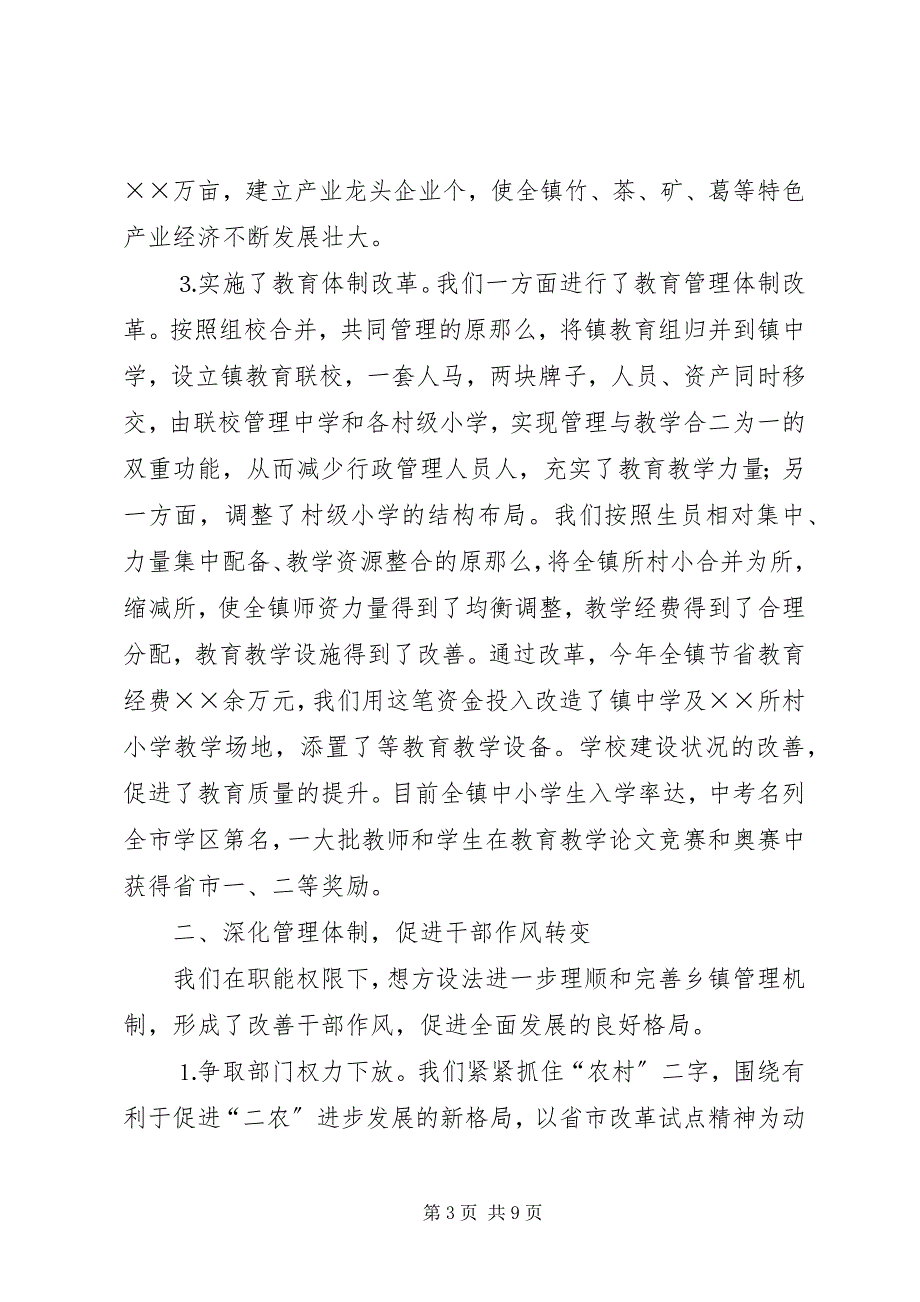 ××万亩，建立产业龙头企业个，使全镇竹、茶、矿、葛等特色
产业经济不断发展壮大。
3.实施了教育体制改革。我们一方面进行了教育管理体制改
革。按照组校合并，共同管理的原那么，将镇教育组归并到镇中
学，设立镇教育联校，一套人马，两块牌子，人员、资产同时移
交，由联校管理中学和各村级小学，实现管理与教学合二为一的
双重功能，从而减少行政管理人员人，充实了教育教学力量；另
一方面，调整了村级小学的结构布局。我们按照生员相对集中、
力量集中配备、教学资源整合的原那么，将全镇所村小合并为所，
缩减所，使全镇师资力量得到了均衡调整，教学经费得到了合理
分配，教育教学设施得到了改善。通过改革，今年全镇节省教育
经费××余万元，我们用这笔资金投入改造了镇中学及××所村
小学教学场地，添置了等教育教学设备。学校建设状况的改善，
促进了教育质量的提升。目前全镇中小学生入学率达，中考名列
全市学区第名，一大批教师和学生在教育教学论文竞赛和奥赛中
获得省市一、二等奖励。
二、深化管理体制，促进干部作风转变
我们在职能权限下，想方设法进一步理顺和完善乡镇管理机
制，形成了改善干部作风，促进全面发展的良好格局。
1.争取部门权力下放。我们紧紧抓住“农村〞二字，围绕有
利于促进“二农〞进步发展的新格局，以省市改革试点精神为动
第 3 页 共 9 页